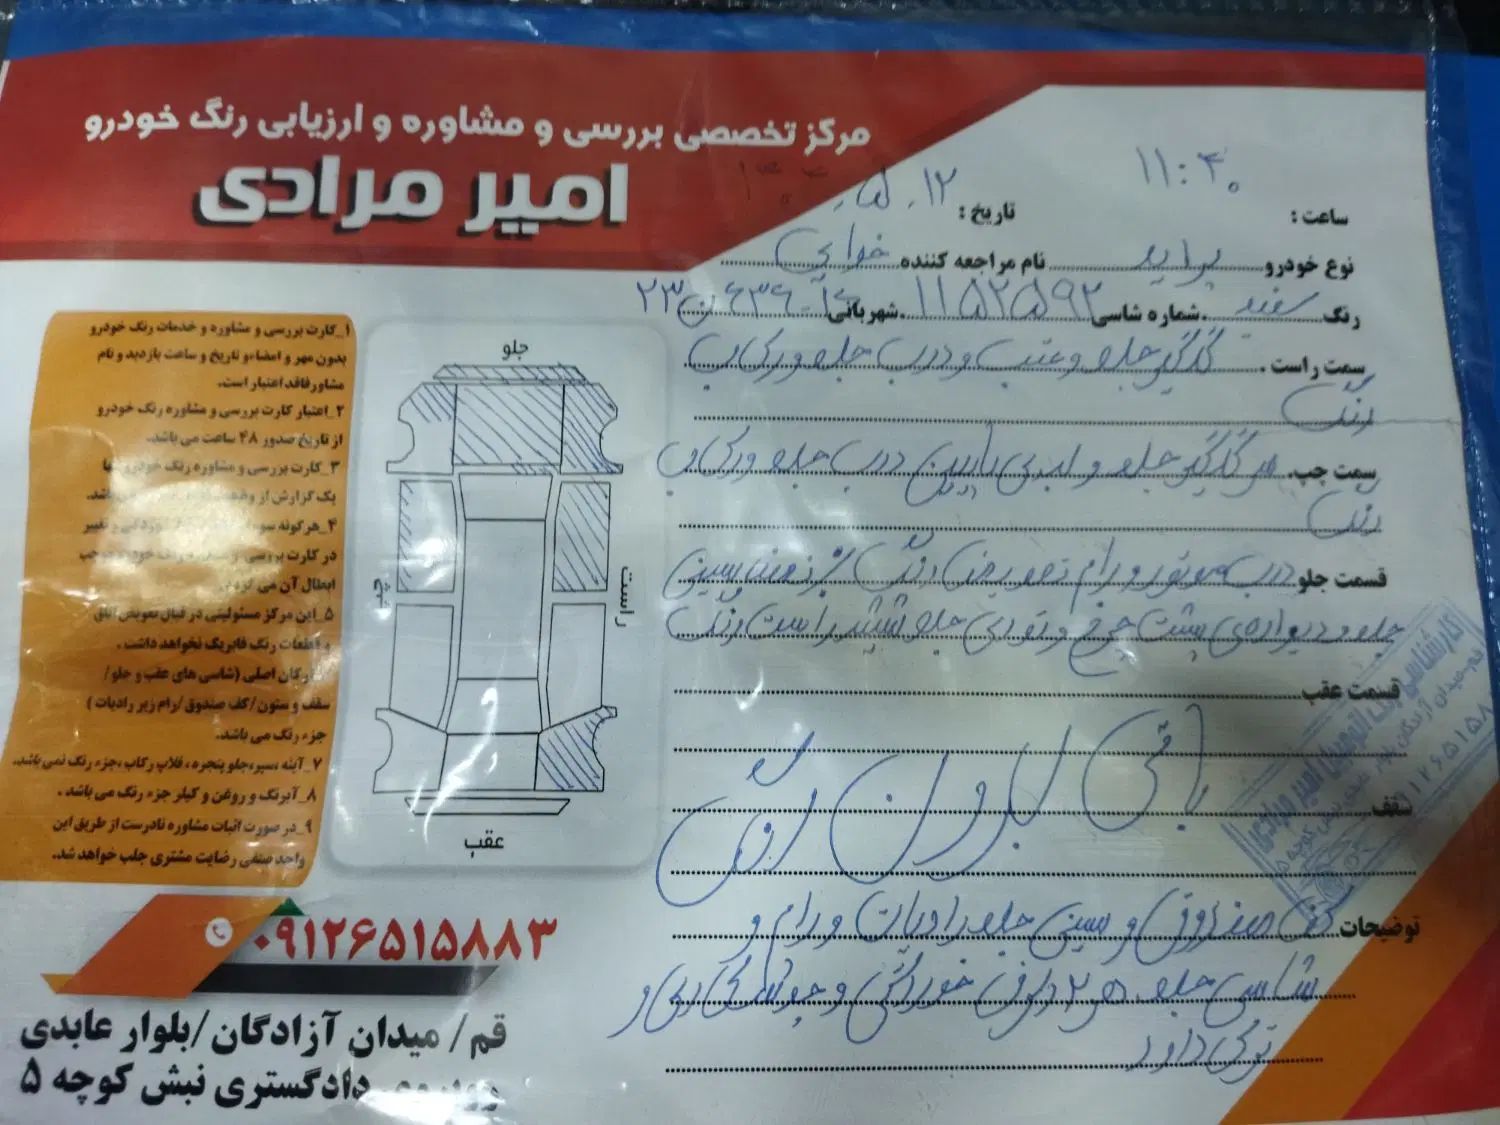 مرکز تخصصی بررسی و مشاوره و ارزیابی رنگ خودرو
امیر مرادی
ساعت : ۱۱:۴۰
تاریخ : ۱۲ . ۵ .
نوع خودرو پراید نام مراجعه کننده
رنگ سفید شماره شاسی ۱۱۵۲۵۹۲ شهربانی
سمت راست . گلگیر جلو و عقب و درب جلو و رکاب
رنگ
سمت چپ . گلگیر جلو و لبه ی پایین درب جلو و رکاب
رنگ
قسمت جلو درب موتور و رام تعویض رنگ سینی
جلو و دیواره ی پشت چرخ و راست رنگ
قسمت عقب
سقف
باقی بدون رنگ
توضیحات کف صندوق و سینی جلو رادیات و رام و
شاسی جلو هر ۲ طرف خوردگی و جوشکاری و
دارد
جلو
راست
چپ
عقب
۱_کارت بررسی و مشاوره و خدمات رنگ خودرو
بدون مهر و امضاء و تاریخ و ساعت بازدید و نام
مشاور فاقد اعتبار است.
۲_اعتبار کارت بررسی و مشاوره رنگ خودرو
از تاریخ صدور ۴۸ ساعت می باشد.
۳_کارت بررسی و مشاوره رنگ خودرو
یک گزارش از باشد.
۴_هرگونه و تغییر
در کارت بررسی و خودرو موجب
ابطال آن می
۵_این مرکز مسئولیتی در قبال تعویض اتاق
و قطعات رنگ فابریک نخواهد داشت .
ارکان اصلی (شاسی های عقب و جلو/
سقف و ستون/کف صندوق/رام زیر رادیات )
جزء رنگ می باشد.
۷_آینه ،سپر،جلو پنجره ، قلاپ رکاب،جزء رنگ نمی باشد.
۸_آبرنگ و روغن و کیلر جزء رنگ می باشد .
۹_در صورت اثبات مشاوره نادرست از طریق این
واحد صنفی رضایت مشتری جلب خواهد شد.
۰۹۱۲۶۵۱۵۸۸۳
قم/ میدان آزادگان/بلوار عابدی
دادگستری نبش کوچه ۵